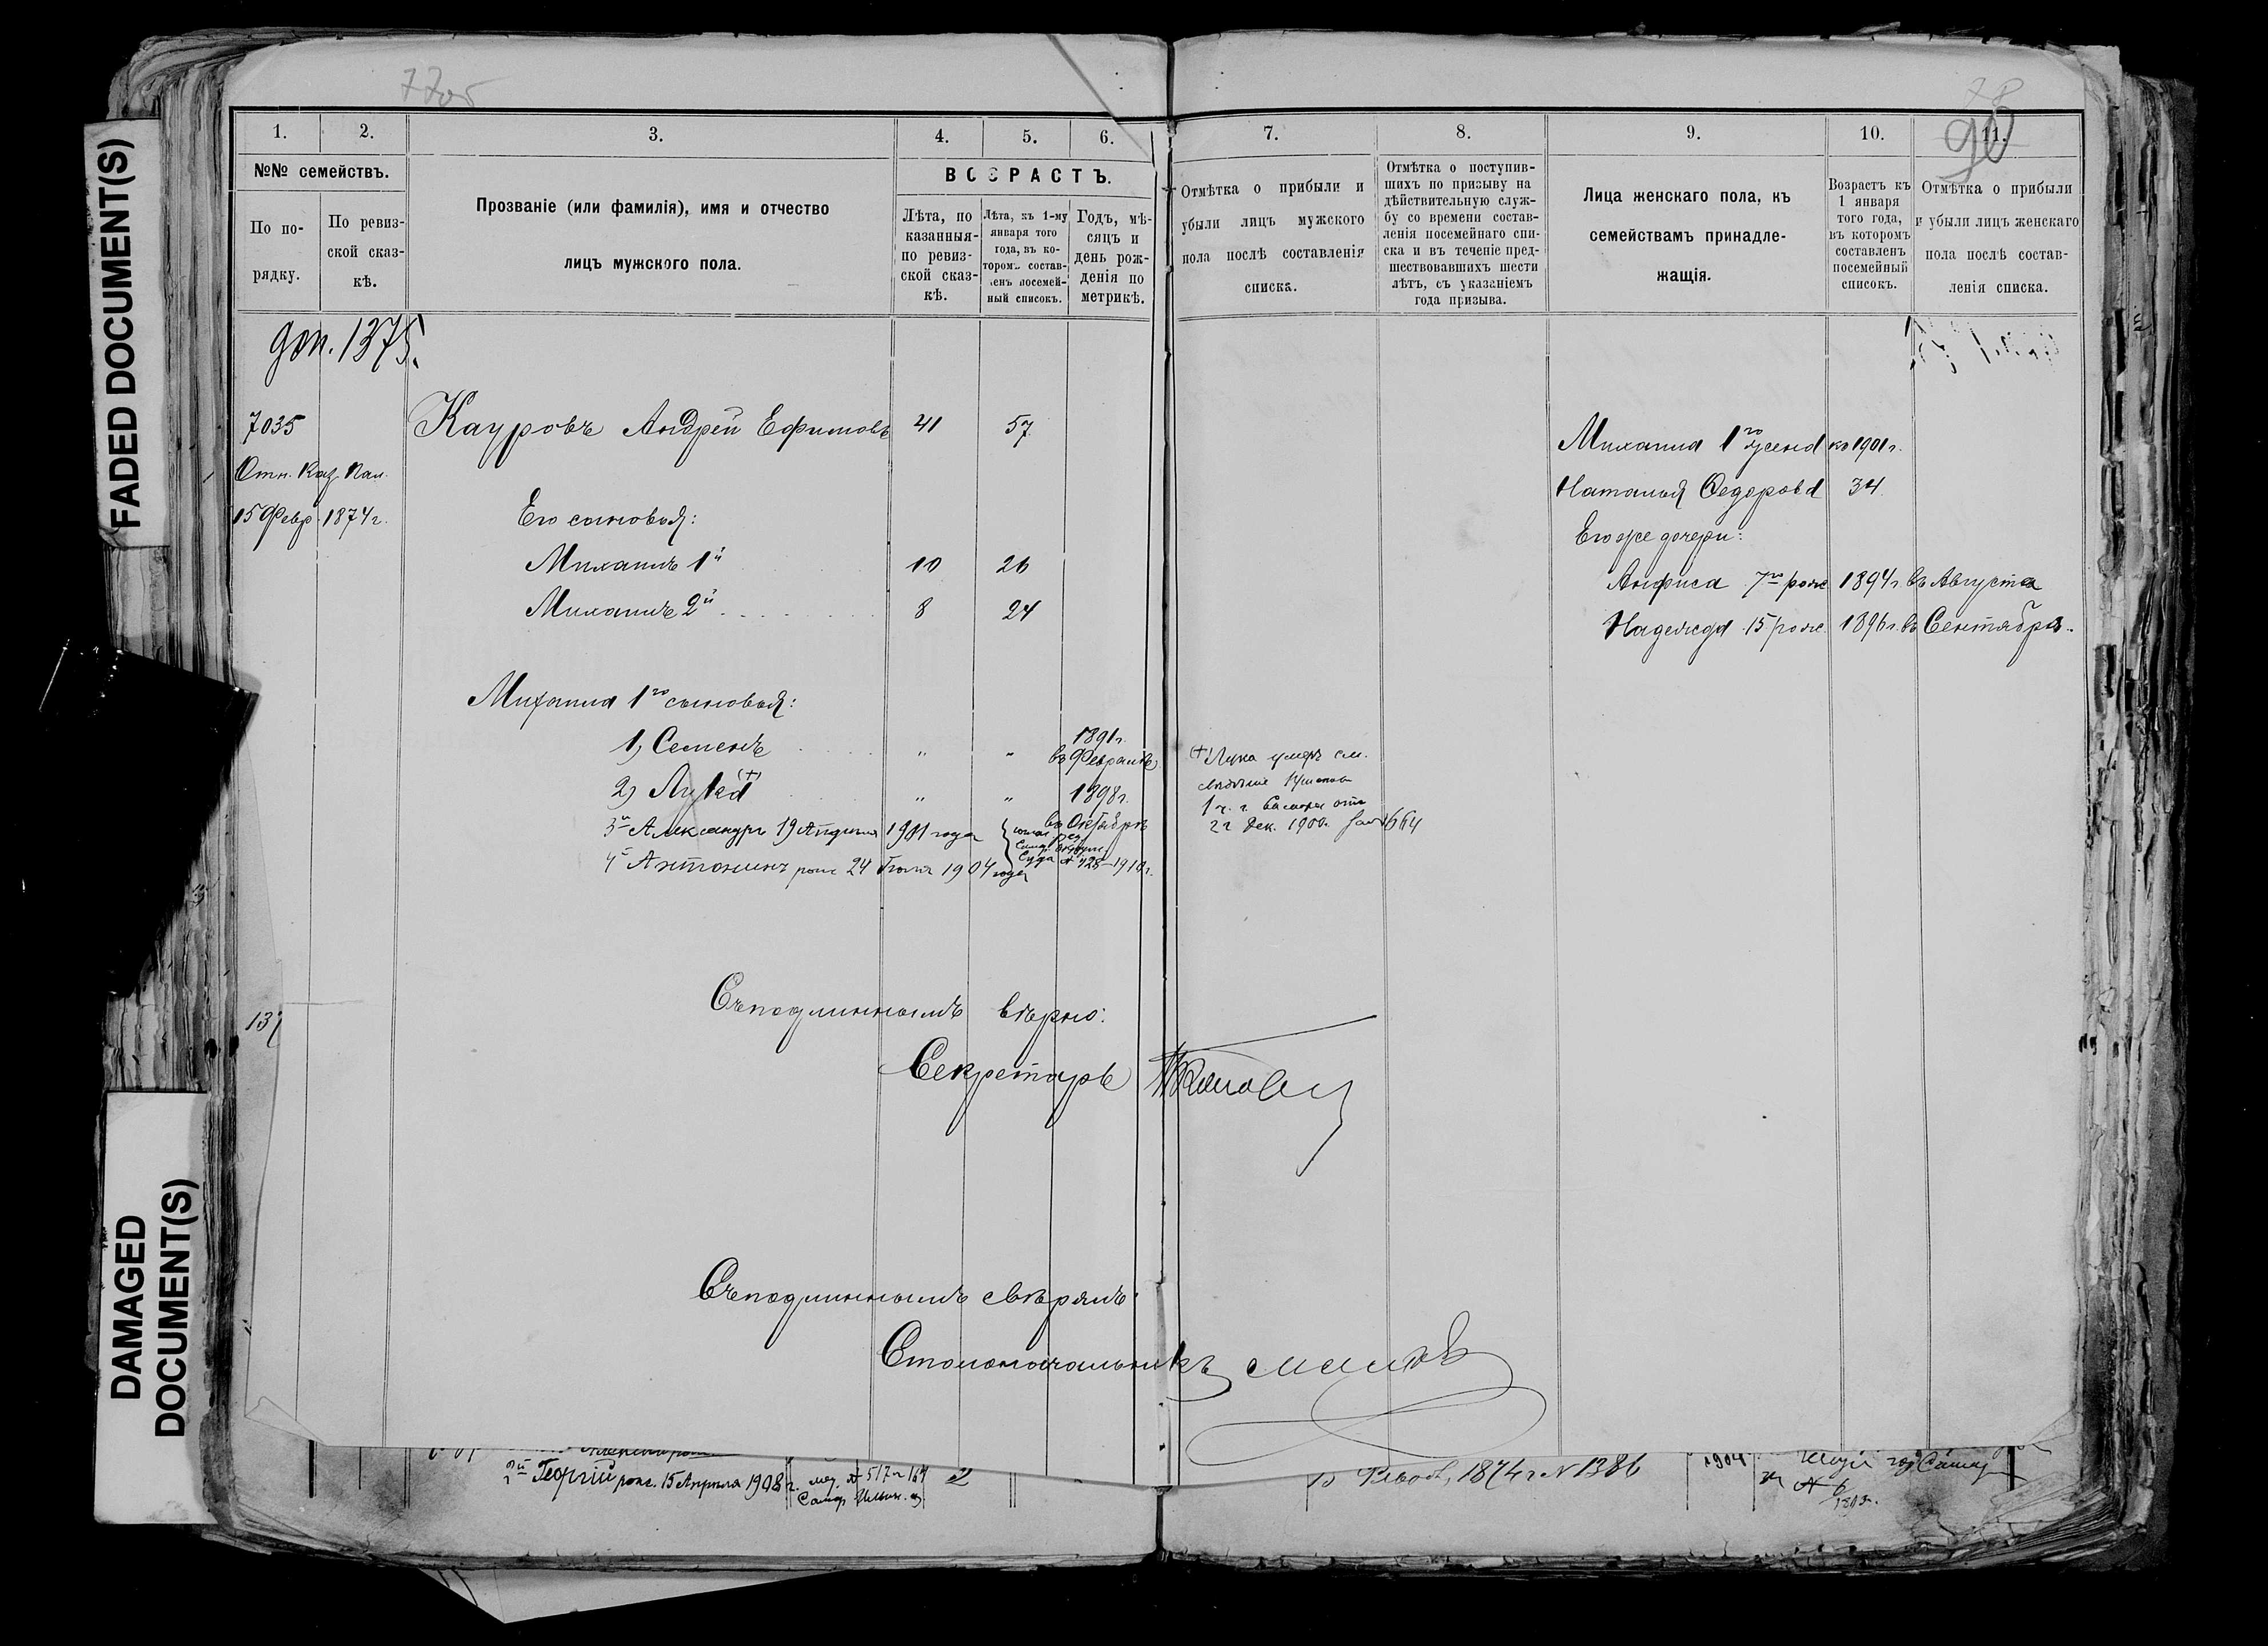 FADED DOCUMENT(S)
DAMAGED
DOCUMENT(S)
77об
78
90
1. 2. 3. 4. 5. 6.
№№ семействъ.
По по-
рядку.
По ревиз-
ской сказ-
кѣ.
Прозваніе (или фамилія), имя и отчество
лицъ мужского пола.
ВОЗРАСТЪ.
Лѣта, по
казанныя
по ревиз-
ской сказ-
кѣ.
Лѣта, къ 1-му
января того
года, въ ко-
торомъ состав-
ленъ посемей-
ный списокъ.
Годъ, мѣ-
сяцъ и
день рож-
денія по
метрикѣ.
7. 8. 9. 10. 11.
Отмѣтка о прибыли и
убыли лицъ мужского
пола послѣ составленія
списка.
Отмѣтка о поступив-
шихъ по призыву на
дѣйствительную служ-
бу со времени состав-
ленія посемейнаго спи-
ска и въ теченіе пред-
шествовавшихъ шести
лѣтъ, съ указаніемъ
года призыва.
Лица женскаго пола, къ
семействамъ принадле-
жащія.
Возрастъ къ
1 января
того года,
въ которомъ
составленъ
посемейный
списокъ.
Отмѣтка о прибыли
и убыли лицъ женскаго
пола послѣ состав-
ленія списка.
доп. 1375.
7035 Кауровъ Андрей Ефимовъ 41 57
Отн. Каз. Пал.
15 Февр. 1874 г.
Его сыновья:
Михаилъ 1й 10 26
Михаилъ 2й 8 24
Михаила 1го сыновья:
1) Семенъ " " 1891 г.
въ Февралѣ
2) Лука (+) " " 1898 г.
въ Октябрѣ
3й Александръ 19 Апрѣля 1901 года
4й Антонинъ рож. 24 Іюля 1904 года
Суда № 428-1910 г.
(+) Лука умеръ см.
1 ч. г. Самары отъ
22 Дек. 1900 г. за № 1664
Михаила 1го жена къ 1901 г.
Наталья Федорова 34
Его же дочери:
Анфиса 7го рож. 1894 г. въ Августа
Надежда 15 рож. 1896 г. въ Сентября.
Съ подлиннымъ вѣрно:
Секретарь
Съ подлиннымъ свѣрялъ:
Столоначальникъ
137
2й Георгій рож. 15 Апрѣля 1908 г. 2
1874 г № 1386
1904